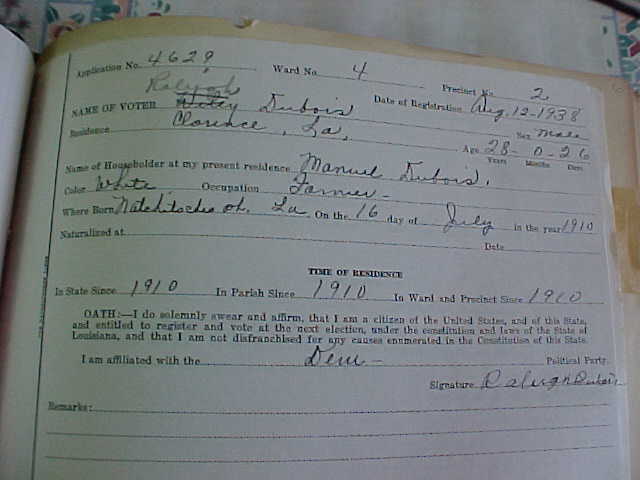 Application No. 4629 Ward No. 4 Precinct No. 2
Raleigh
NAME OF VOTER Wiley Dubois Date of Registration Aug. 12-1938
Residence Clarence, La, Sex male
Age 28 - 0 - 26
Years Months Days
Name of Householder at my present residence Manuel Dubois.
Color White Occupation Farmer -
Where Born Natchitoches Ph. La. On the 16 day of July in the year 1910
Naturalized at Date
TIME OF RESIDENCE
In State Since 1910 In Parish Since 1910 In Ward and Precinct Since 1910
OATH:—I do solemnly swear and affirm, that I am a citizen of the United States, and of this State,
and entitled to register and vote at the next election, under the constitution and laws of the State of
Louisiana, and that I am not disfranchised for any causes enumerated in the Constitution of this State.
I am affiliated with the Dem - Political Party.
Signature Raleigh Dubois
Remarks: